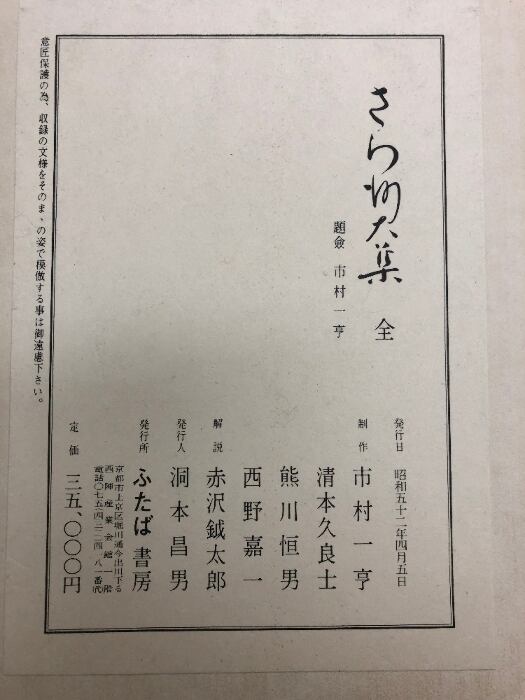 さら紗大集 全
題僉 市村一亨
発行日 昭和五十二年四月五日
制作 市村一亨
清本久良士
熊川恒男
西野嘉一
解説 赤沢鉞太郎
発行人 洞本昌男
発行所 ふたば書房
京都市上京区堀川通今出川下る
西陣産業会館一階
電話〇七五(四三二)四一八一番(代)
定価 三五、〇〇〇円
意匠保護の為、収録の文様をそのまゝの姿で模倣する事は御遠慮下さい。